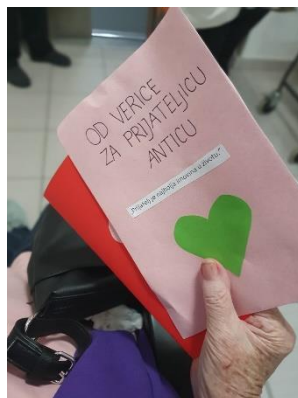 OD VERICE
ZA PRIJATELJICU
ANTICU
„Prijatelj je najbolja imovina u životu.”